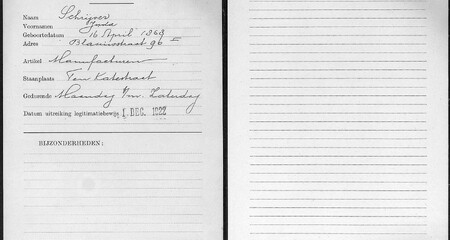 Naam Schijver
Voornamen Juda
Geboortedatum 16 April 1868
Adres Blasiusstraat 96 II
Artikel Manufacturen
Staanplaats Ten Katestraat
Gedurende Maandag t/m. Zaterdag
Datum uitreiking legitimatiebewijs 1 DEC. 1922
BIJZONDERHEDEN: